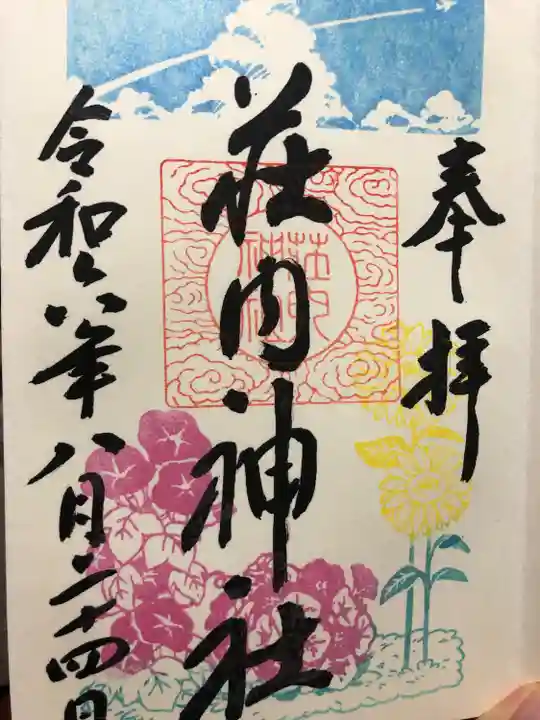 奉拝
荘内神社
荘内神社
令和六年八月二十四日